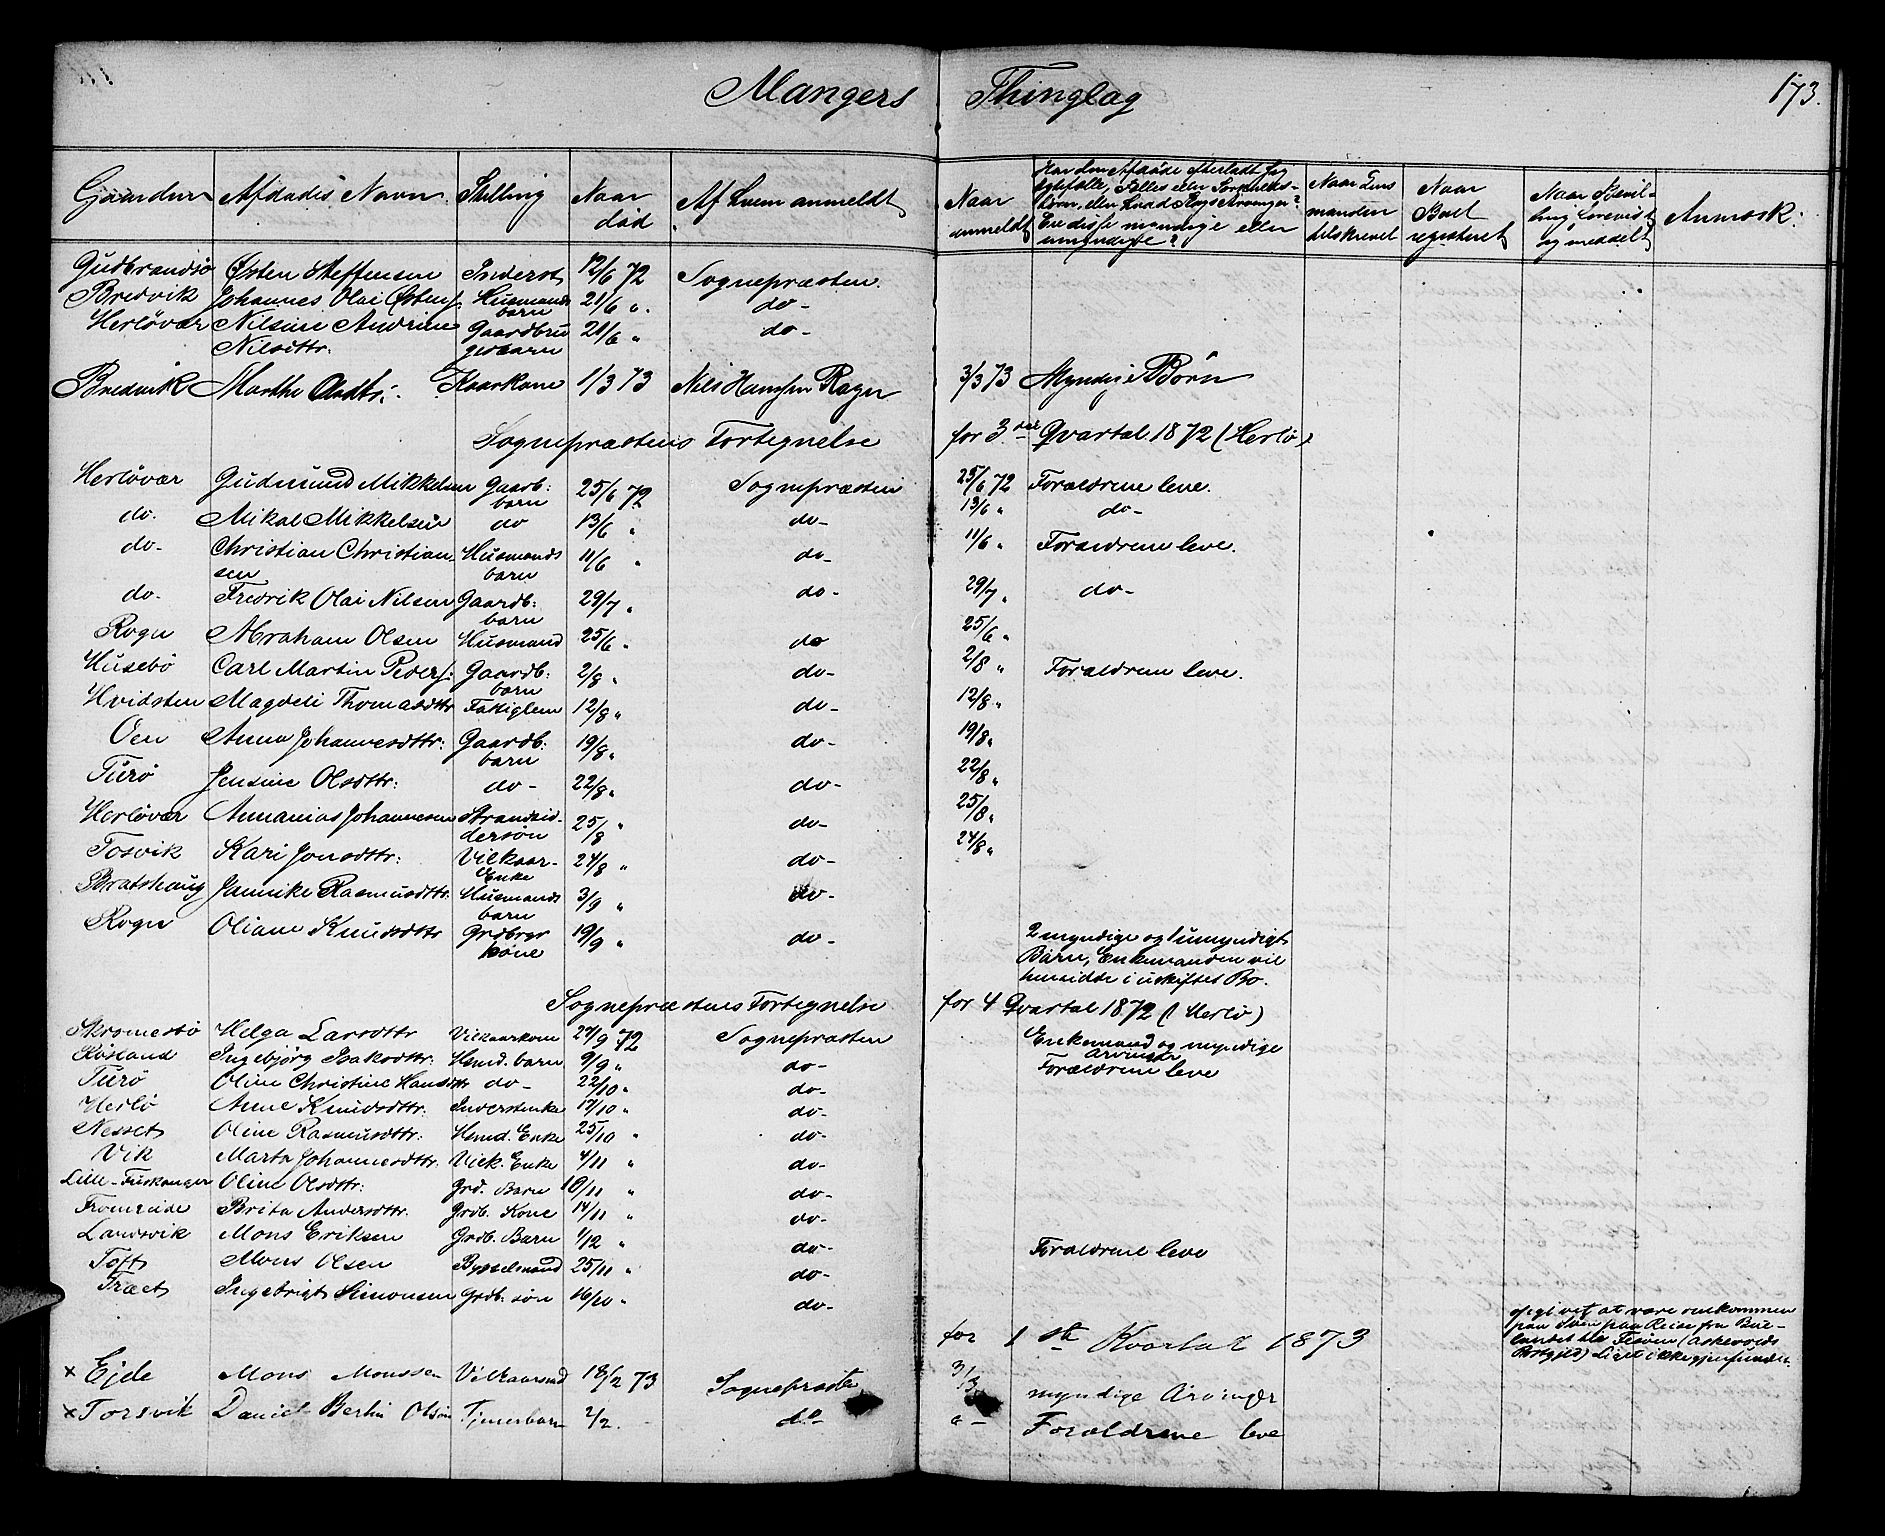 Mangers Thinglag 173.
Gaarden Afdødes Navn Stilling Naar død Af hvem anmeldt Naar anmeldt Har den Afdøde efterladt sig Ægtefælle, Fælles eller Særkulds-børn, eller hvad slags Arvinger? Ere disse myndige eller umyndige? Naar Lensmanden tilskrevet Naar Boet registeret Naar Bevilling og meddelt Anmærk:
Gudbrandsø Østen Steffensen Inderst 12/6 72 Sognepræsten
Bredvik Johannes Olai Østens: Husmands barn 21/6 " do-
Herløvær Nilsine Andrine Nilsdttr: Gaardbrugersbarn 21/6 " do-
Bredvik Marthe Oldtr: Kaarkone 1/3 73 Nils Hanssen Rogn 3/3 73 Myndige Børn
Sognepræstens Fortegnelse for 3die Qvartal 1872 (Herlø)
Herløvær Gudmund Mikkelsen Gaardb: barn 25/6 72 Sognepræsten 25/6 72 Forældrene leve.
do. Mikal Mikkelsen do 13/6 " do- 13/6 " do-
do- Christian Christiansen Husmands barn 11/6 " do- 11/6 " Forældrene leve.
do- Fredrik Olai Nilsen Gaardb: barn 29/7 " do- 29/7 " do-
Rogn Abraham Olsen Husmand 25/6 " do 25/6 "
Husebø Carl Martin Peders: Gaardb: barn 2/8 " do- 2/8 " Forældrene leve.
Hvidsten Magdeli Thomasdttr Fatiglem 12/8 " do- 12/8 "
Oen Anna Johannesdttr: Gaardb: barn 19/8 " do- 19/8 "
Turø Jensine Olsdttr: do- 22/8 " do- 22/8 "
Herløvær Annanias Johannesen Strandsiddersøn 25/8 " do- 25/8 "
Tosvik Kari Jonsdttr: Vilkaar-Enke 24/8 " do- 24/8 "
Bratshaug Jannike Rasmusdttr: Husmands barn 3/9 " do-
Rogn Oliane Knudsdttr Grdbrgr kone 19/9 " do- 2 myndige og 1 umyndigt
Børn, Enkemanden vil
hensidde i uskiftet Bo.
Sognepræstens Fortegnelse for 4 Qvartal 1872 (Herlø)
Skromesbø Helga Larsdttr Vilkaarkone 27/9 72 Sognepræsten Enkemand og myndige Arvinger
Røsland Ingebjörg Isaksdttr: Hsmd. barn 9/9 " do- Forældrene leve
Turø Oline Christine Hansdttr do- 22/10 " do-
Herlø Anne Knudsdttr: Inderstenke 17/10 " do-
Nesset Oline Rasmusdttr: Hsmd. Enke 25/10 " do-
Vik Marta Johannesdttr: Vilk. Enke 4/11 " do-
Lille-Fuskanger Oline Olsdttr: Grd. Barn 10/11 " do-
Fromreide Brita Andersdttr. Grdb. Kone 14/11 " do-
Landsvik Mons Eriksen Grdb. Barn 1/12 " do- Forældrene leve
Toft Mons Olsen Bysselmand 25/11 " do-
Træet Ingebrigt Simonsen Grdb: søn 16/10 " do- opgivet at være omkommen
paa Søen paa Reise fra Bue-
landet til (Askevolds
Prstgjeld) Liget ikke gjenfundet.
for 1ste Kvartal 1873
x Ejde Mons Monssen Vilkaarsmd 18/2 73 Sognepræsten 3/3 myndige Arvinger
x Torsvik Daniel Bertin Olsen Tjenerbarn 2/2. - do- Forældrene leve